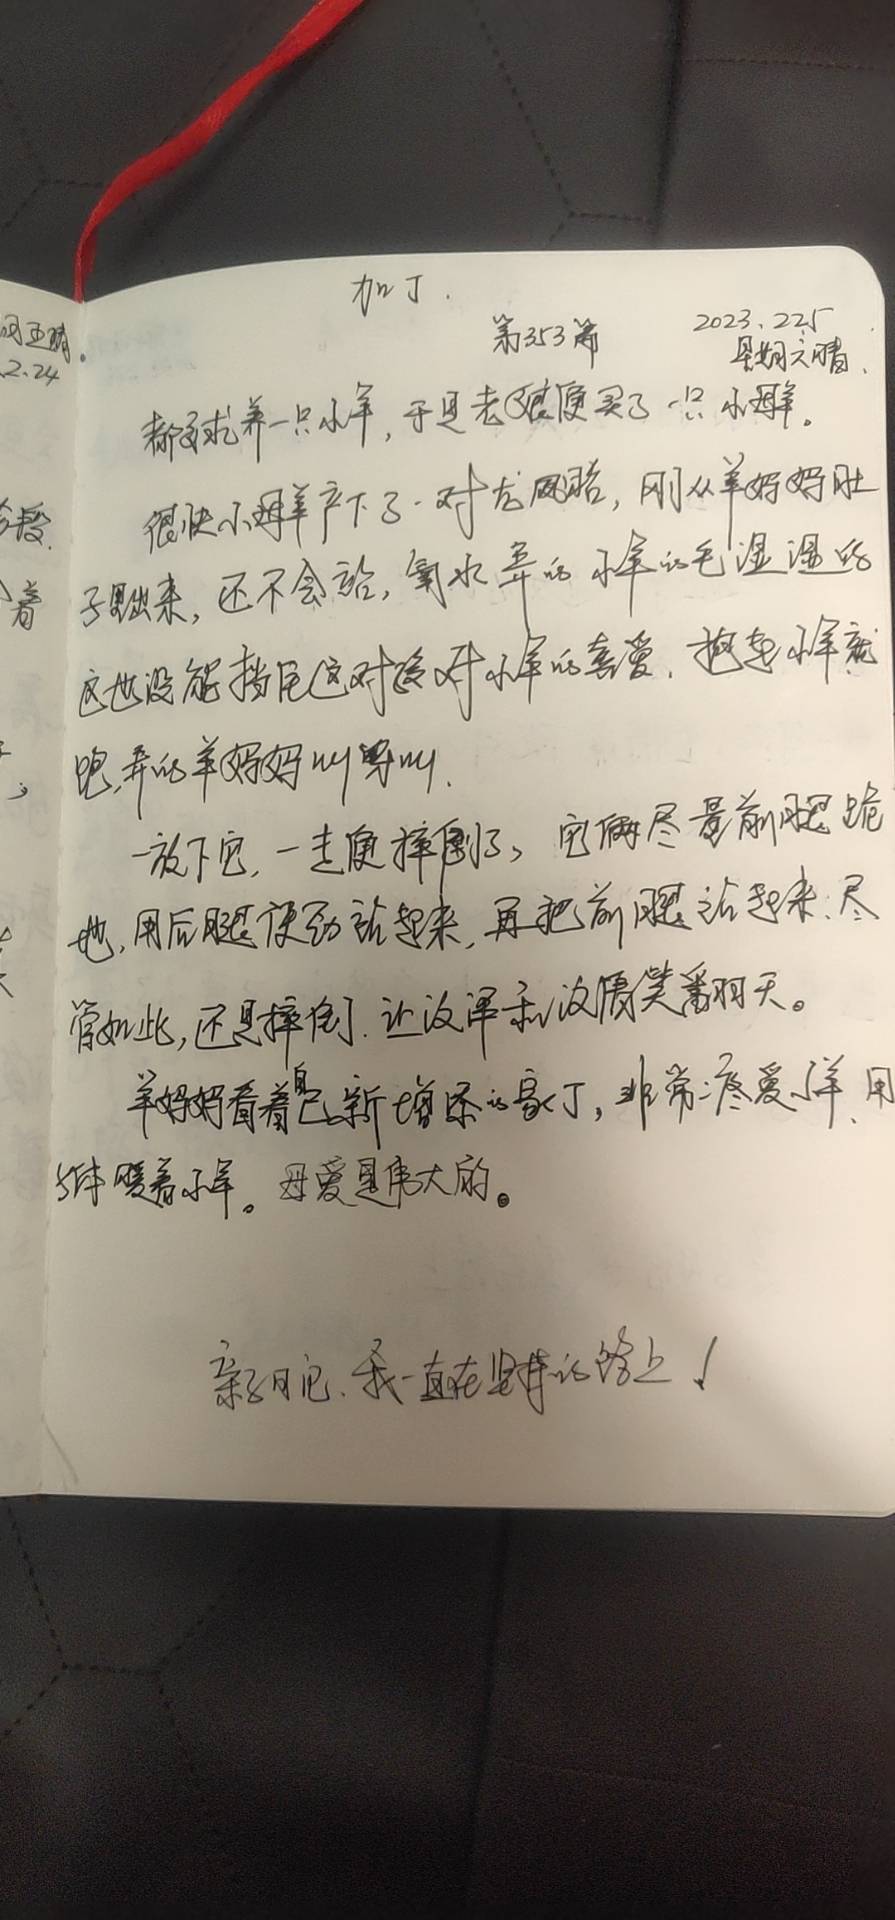 加丁.
第353篇 2023.2.25
星期六晴.
2.24
都要求养一只小羊,于是老便买了一只小母羊。
很快小母羊产下了一对龙凤胎,刚从羊妈妈肚
着
子里出来,还不会站,羊水弄的小羊的毛湿湿的
这也没能挡住这对对小羊的喜爱.抱起小羊就
跑,弄的羊妈妈叫叫.
一放下它,一走便摔倒了,它俩尽量前腿跪
地,用后腿使劲站起来,再把前腿站起来.尽
管如此,还是摔倒.让汝泽和汝笑翻天。
羊妈妈看着自己新增添的家丁,非常疼爱小羊,用
体暖着小羊。母爱是伟大的。
亲子日记.我一直在坚持的路上!